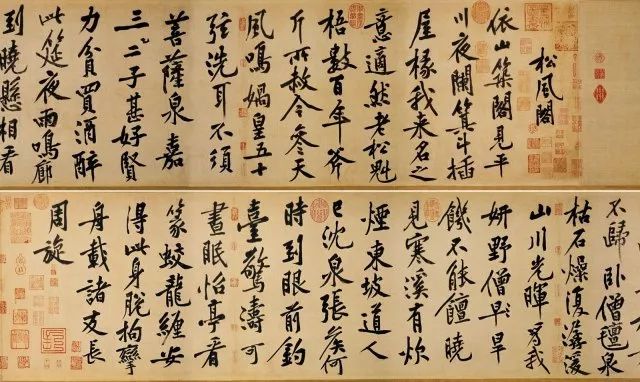 松風閣
依山築閣見平
川夜闌箕斗插
屋椽我來名之
意適然老松魁
梧數百年斧
斤所赦今參天
風鳴媧皇五十
弦洗耳不須
菩薩泉嘉
三二子甚好賢
力貧買酒醉
此筵夜雨鳴廊
到曉懸相看
不歸卧僧氈泉
枯石燥復潺湲
山川光暉為我
妍野僧早旱
饑不能饘曉
見寒溪有炊
煙東坡道人
已沈泉張侯何
時到眼前釣
臺驚濤可
晝眠怡亭看
篆蛟龍纏安
得此身脫拘攣
舟載諸友長
周旋